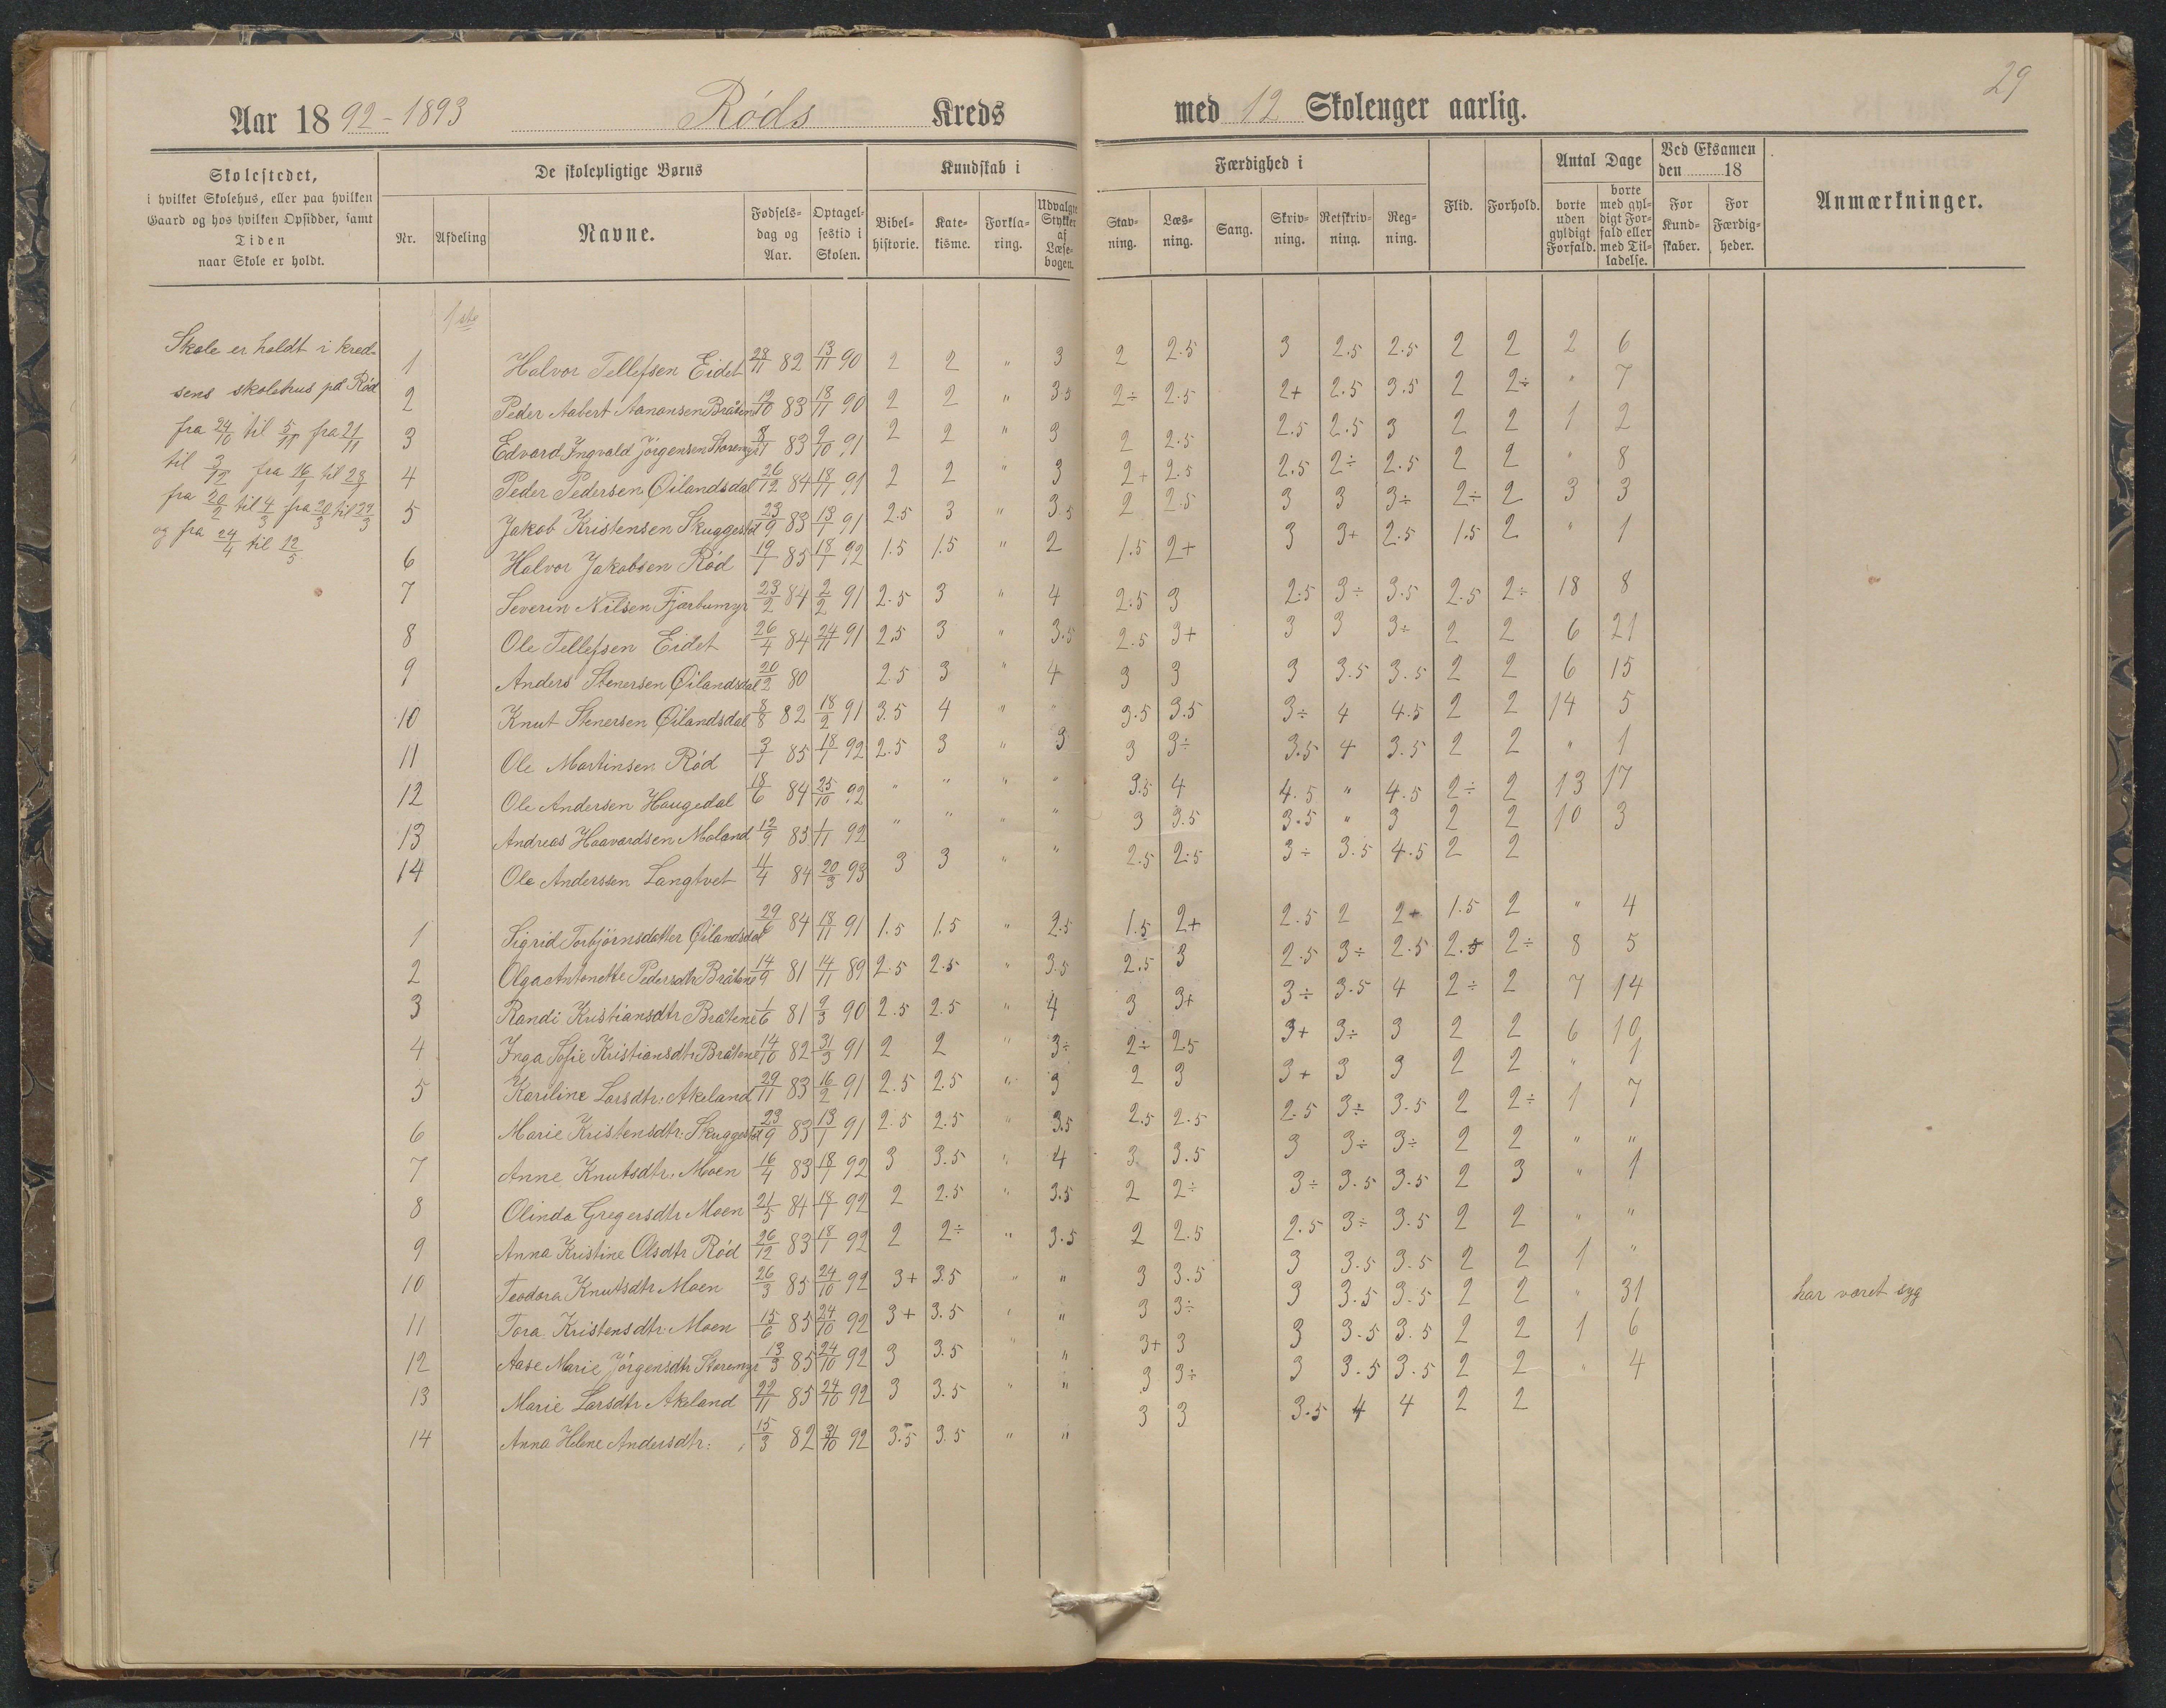 29
Aar 1892-1893 Röds Kreds med 12 Skoleuger aarlig.
Skolestedet,
i hvilket Skolehus, eller paa hvilken
Gaard og hos hvilken Opsidder, samt
Tiden
naar Skole er holdt.
De skolepligtige Børns
Nr. Afdeling Navne. Fødselsdag og Aar. Optagelsestid i Skolen.
Kundskab i
Bibelhistorie. Katekisme. Forklaring. Udvalgte Stykker af Læsebogen.
Færdighed i
Stavning. Læsning. Sang. Skrivning. Retskrivning. Regning.
Flid. Forhold.
Antal Dage
borte uden gyldigt Forfald. borte med gyldigt Forfald eller med Tilladelse.
Ved Eksamen den 18
For Kundskaber. For Færdigheder.
Anmærkninger.
1ste
Skole er holdt i kred-
sens skolehus på Röd
fra 24/10 til 5/11 fra 21/11
til 3/12 fra 16/1 til 28/1
fra 20/2 til 4/3 fra 20/3 til 29/3
og fra 24/4 til 12/5
1 Halvor Tellefsen Eidet 28/11 82 13/11 90 2 2 " 3 2 2.5 3 2.5 2.5 2 2 2 6
2 Peder Aabert Aanonsen Bråtene 12/10 83 18/11 90 2 2 " 3.5 2÷ 2.5 2+ 2.5 3.5 2 2÷ " 7
3 Edvard Ingvald Jörgensen Storemyr 8/11 83 9/10 91 2 2 " 3 2 2.5 2.5 2.5 3 2 2 1 2
4 Peder Pedersen Öilandsdal 26/12 84 18/11 91 2 2 " 3 2+ 2.5 2.5 2÷ 2.5 2 2 " 8
5 Jakob Kristensen Skuggestöl 23/9 83 13/1 91 2.5 3 " 3.5 2 2.5 3 3 3÷ 2÷ 2 3 3
6 Halvor Jakobsen Röd 19/1 85 18/1 92 1.5 1.5 " 2 1.5 2+ 3 3+ 2.5 1.5 2 " 1
7 Severin Nilsen Fjærbumyr 23/2 84 2/2 91 2.5 3 " 4 2.5 3 2.5 3÷ 3.5 2.5 2÷ 18 8
8 Ole Tellefsen Eidet 26/4 84 24/11 91 2.5 3 " 3.5 2.5 3+ 3 3 3÷ 2 2 6 21
9 Anders Stenersen Öilandsdal 20/2 80 2.5 3 " 4 3 3 3 3.5 3.5 2 2 6 15
10 Knut Stenersen Öilandsdal 8/8 82 18/2 91 3.5 4 " " 3.5 3.5 3÷ 4 4.5 2 2 14 5
11 Ole Martinsen Röd 3/1 85 18/1 92 2.5 3 " 3 3 3÷ 3.5 4 3.5 2 2 " 1
12 Ole Andersen Haugedal 18/6 84 25/10 92 " " " " 3.5 4 4.5 " 4.5 2÷ 2 13 17
13 Andreas Haavardsen Moland 12/9 83 1/11 92 " " " " 3 3.5 3.5 " 3 2 2 10 3
14 Ole Anderssen Langtvet 4/4 84 20/3 93 3 3 " " 2.5 2.5 3÷ 3.5 4.5 2 2
1 Sigrid Torbjörnsdatter Öilandsdal 29/6 84 18/11 91 1.5 1.5 " 2.5 1.5 2+ 2.5 2 2+ 1.5 2 " 4
2 Olga Antonette Pedersdtr Bråtene 14/9 81 14/11 89 2.5 2.5 " 3.5 2.5 3 2.5 3÷ 2.5 2.5 2÷ 8 5
3 Randi Kristiansdtr Bråtene 1/6 81 9/3 90 2.5 2.5 " 4 3 3+ 3÷ 3.5 4 2÷ 2 7 14
4 Inga Sofie Kristiansdtr Bråtene 14/10 82 31/3 91 2 2 " 3÷ 2÷ 2.5 3+ 3÷ 3 2 2 6 10
5 Kariline Larsdtr: Akeland 29/11 83 16/2 91 2.5 2.5 " 3 2 3 3+ 3 3 2 2 " 1
6 Marie Kristensdtr: Skuggestöl 23/9 83 13/1 91 2.5 2.5 " 3.5 2.5 2.5 2.5 3÷ 3.5 2 2÷ 1 7
7 Anne Knutsdtr: Moen 16/4 83 18/1 92 3 3.5 " 4 3 3.5 3 3÷ 3÷ 2 2 " "
8 Olinda Gregersdtr Moen 21/5 84 18/1 92 2 2.5 " 3.5 2 2÷ 3÷ 3.5 3.5 2 3 " 1
9 Anna Kristine Olsdtr Röd 26/12 83 18/1 92 2 2÷ " 3.5 2 2.5 2.5 3÷ 3.5 2 2 " "
10 Teodora Knutsdtr Moen 26/3 85 24/10 92 3+ 3.5 " " 3 3.5 3 3.5 3.5 2 2 1 "
11 Tora Kristensdtr: Moen 15/6 85 24/10 92 3+ 3.5 " " 3 3÷ 3 3.5 3.5 2 2 " 31 har været syg
12 Aase Marie Jörgensdtr Storemyr 13/3 85 24/10 92 3 3.5 " " 3+ 3 3 3.5 3.5 2 2 1 6
13 Marie Larsdtr Akeland 22/11 85 24/10 92 3 3.5 " " 3 3÷ 3 3.5 3.5 2 2 " 4
14 Anna Helene Andersdtr: 15/3 82 31/10 92 3.5 3.5 " " 3 3 3.5 4 4 2 2